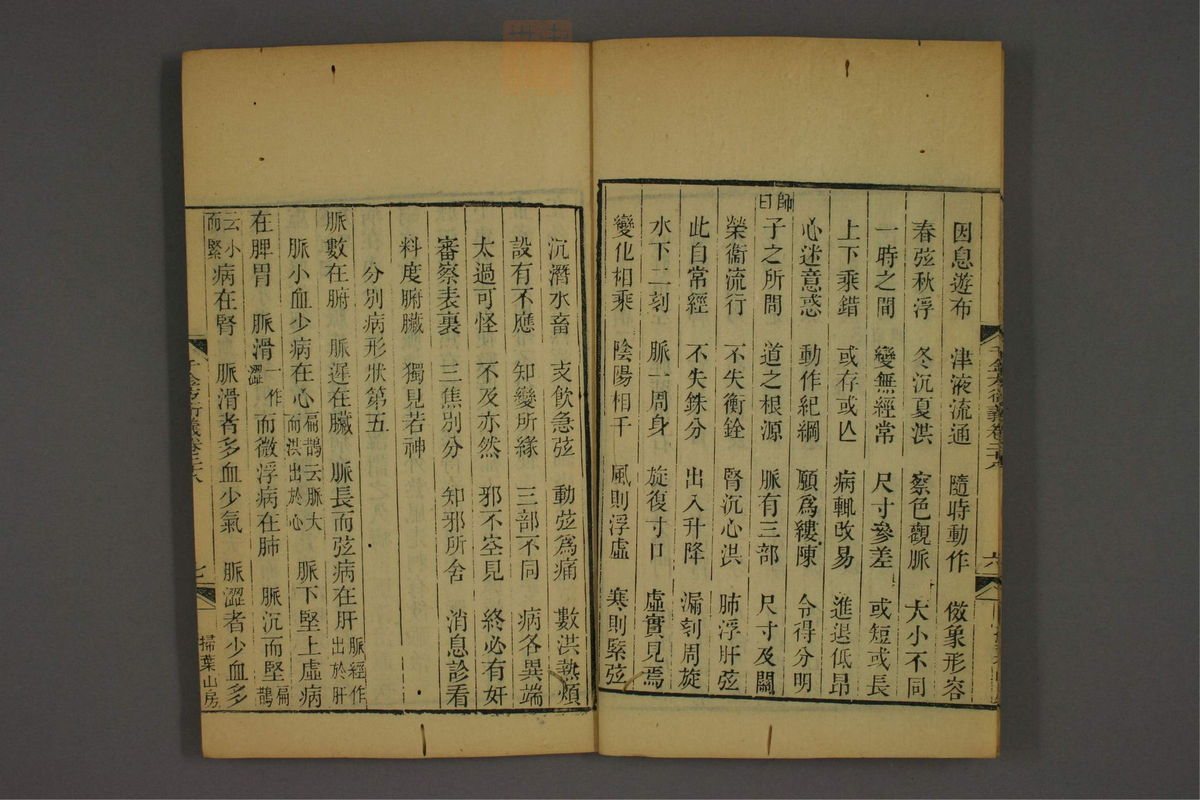 因息遊布　津液流通　隨時動作　傚象形容
春弦秋浮　冬沉夏洪　察色觀脈　大小不同
一時之間　變無經常　尺寸參差　或短或長
上下乖錯　或存或亾　病輒改易　進退低昂
心迷意惑　動作紀綱　願爲縷陳　令得分明
師曰
子之所問　道之根源　脈有三部　尺寸及關
榮衞流行　不失衡銓　腎沉心洪　肺浮肝弦
此自常經　不失銖分　出入升降　漏刻周旋
水下二刻　脈一周身　旋復寸口　虛實見焉
變化相乘　陰陽相干　風則浮虛　寒則緊弦
沉潛水畜　支飲急弦　動弦爲痛　數洪熱煩
設有不應　知變所緣　三部不同　病各異端
太過可怪　不及亦然　邪不空見　終必有奸
審察表裏　三焦別分　知邪所舍　消息診看
料度腑臟　獨見若神
分別病形狀第五
脈數在腑　脈遲在臟　脈長而弦病在肝脈經作出於肝
脈小血少病在心扁鵲云脈大而洪出於心　脈下堅上虛病
在脾胃　脈滑一作澀而微浮病在肺　脈沉而堅扁鵲
云小而緊病在腎　脈滑者多血少氣　脈澀者少血多
千金方衍義卷二十八
七
掃葉山房
六